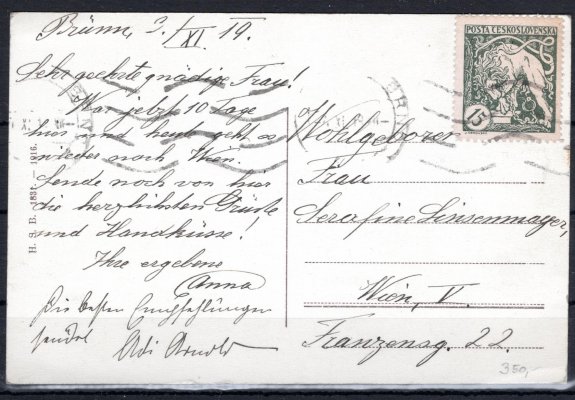 Brünn, 3./XI. 19.
Sehr geehrte gnädige Frau!
War jetzt 10 Tage
hier und heute geht es
wieder nach Wien.
Sende noch von hier
die herzlichsten Grüße
und Handküsse!
Ihre ergebene
Anna
Die besten Empfehlungen
sendet Adi Arnold
H. S. B. 1831. — 1916.
POŠTA ČESKOSLOVENSKÁ
15
Wohlgeboren
Frau
Serafine Linsenmayer,
Wien, V.
Franzensg. 22.
350,-